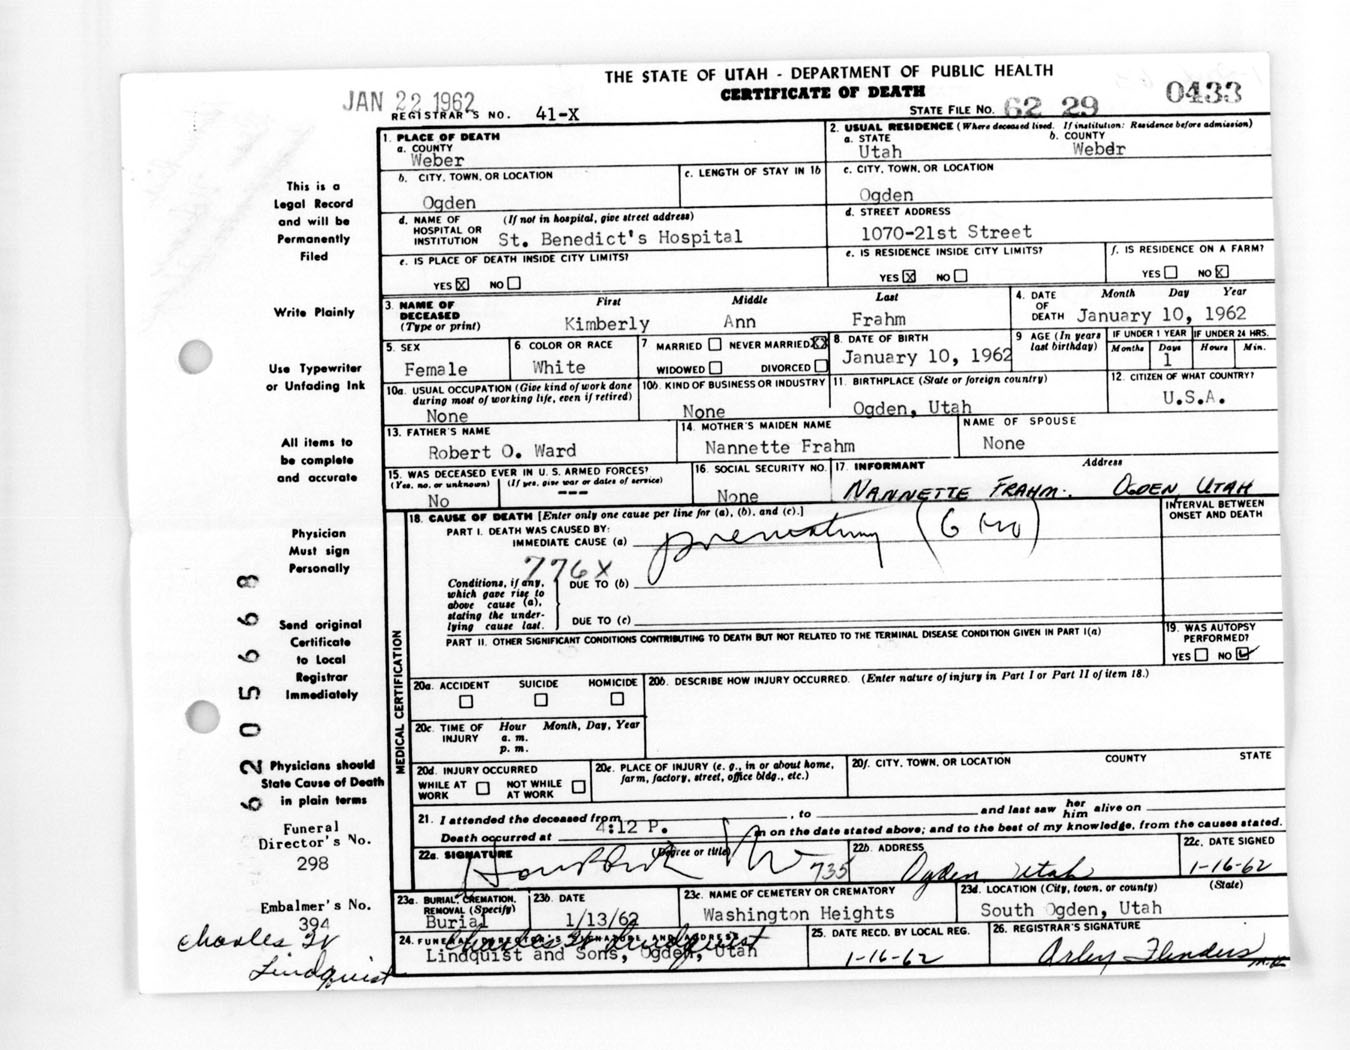 THE STATE OF UTAH - DEPARTMENT OF PUBLIC HEALTH
CERTIFICATE OF DEATH
JAN 22 1962
REGISTRAR'S NO. 41-X
STATE FILE NO. 62 29 0433
This is a
Legal Record
and will be
Permanently
Filed
Write Plainly
Use Typewriter
or Unfading Ink
All items to
be complete
and accurate
Physician
Must sign
Personally
Send original
Certificate
to Local
Registrar
Immediately
Physicians should
State Cause of Death
in plain terms
Funeral
Director's No.
298
Embalmer's No.
394
Charles W
Lindquist
6205668
1. PLACE OF DEATH
a. COUNTY
Weber
2. USUAL RESIDENCE (Where deceased lived. If institution: Residence before admission)
a. STATE
Utah
b. COUNTY
Weber
b. CITY, TOWN, OR LOCATION
Ogden
c. LENGTH OF STAY IN 1b
c. CITY, TOWN, OR LOCATION
Ogden
d. NAME OF HOSPITAL OR INSTITUTION (If not in hospital, give street address)
St. Benedict's Hospital
d. STREET ADDRESS
1070-21st Street
e. IS PLACE OF DEATH INSIDE CITY LIMITS?
YES X NO
e. IS RESIDENCE INSIDE CITY LIMITS?
YES X NO
f. IS RESIDENCE ON A FARM?
YES NO X
3. NAME OF DECEASED (Type or print)
First Middle Last
Kimberly Ann Frahm
4. DATE OF DEATH
Month Day Year
January 10, 1962
5. SEX
Female
6. COLOR OR RACE
White
7 MARRIED NEVER MARRIED XX
WIDOWED DIVORCED
8. DATE OF BIRTH
January 10, 1962
9 AGE (In years last birthday)
IF UNDER 1 YEAR IF UNDER 24 HRS.
Months Days Hours Min.
1
10a. USUAL OCCUPATION (Give kind of work done during most of working life, even if retired)
None
10b. KIND OF BUSINESS OR INDUSTRY
None
11. BIRTHPLACE (State or foreign country)
Ogden, Utah
12. CITIZEN OF WHAT COUNTRY?
U.S.A.
13. FATHER'S NAME
Robert O. Ward
14. MOTHER'S MAIDEN NAME
Nannette Frahm
NAME OF SPOUSE
None
15. WAS DECEASED EVER IN U. S. ARMED FORCES?
(Yes, no, or unknown) (If yes, give war or dates of service)
No ---
16. SOCIAL SECURITY NO.
None
17. INFORMANT Address
NANNETTE FRAHM. OGDEN, UTAH
MEDICAL CERTIFICATION
18. CAUSE OF DEATH [Enter only one cause per line for (a), (b), and (c).]
INTERVAL BETWEEN ONSET AND DEATH
PART I. DEATH WAS CAUSED BY:
IMMEDIATE CAUSE (a) prematurity (6 mo)
776X
Conditions, if any, which gave rise to above cause (a), stating the underlying cause last.
DUE TO (b)
DUE TO (c)
PART II. OTHER SIGNIFICANT CONDITIONS CONTRIBUTING TO DEATH BUT NOT RELATED TO THE TERMINAL DISEASE CONDITION GIVEN IN PART I(a)
19. WAS AUTOPSY PERFORMED?
YES NO
20a. ACCIDENT SUICIDE HOMICIDE
20b. DESCRIBE HOW INJURY OCCURRED. (Enter nature of injury in Part I or Part II of item 18.)
20c. TIME OF INJURY Hour a. m. p. m. Month, Day, Year
20d. INJURY OCCURRED
WHILE AT WORK NOT WHILE AT WORK
20e. PLACE OF INJURY (e. g., in or about home, farm, factory, street, office bldg., etc.)
20f. CITY, TOWN, OR LOCATION COUNTY STATE
21. I attended the deceased from , to and last saw her him alive on
Death occurred at 4:12 P. m on the date stated above; and to the best of my knowledge, from the causes stated.
22a. SIGNATURE (Degree or title)
735
22b. ADDRESS
Ogden Utah
22c. DATE SIGNED
1-16-62
23a. BURIAL, CREMATION, REMOVAL (Specify)
Burial
23b. DATE
1/13/62
23c. NAME OF CEMETERY OR CREMATORY
Washington Heights
23d. LOCATION (City, town, or county) (State)
South Ogden, Utah
24. FUNERAL DIRECTOR'S SIGNATURE AND ADDRESS
Charles W Lindquist
Lindquist and Sons, Ogden, Utah
25. DATE RECD. BY LOCAL REG.
1-16-62
26. REGISTRAR'S SIGNATURE
Arley Flinders